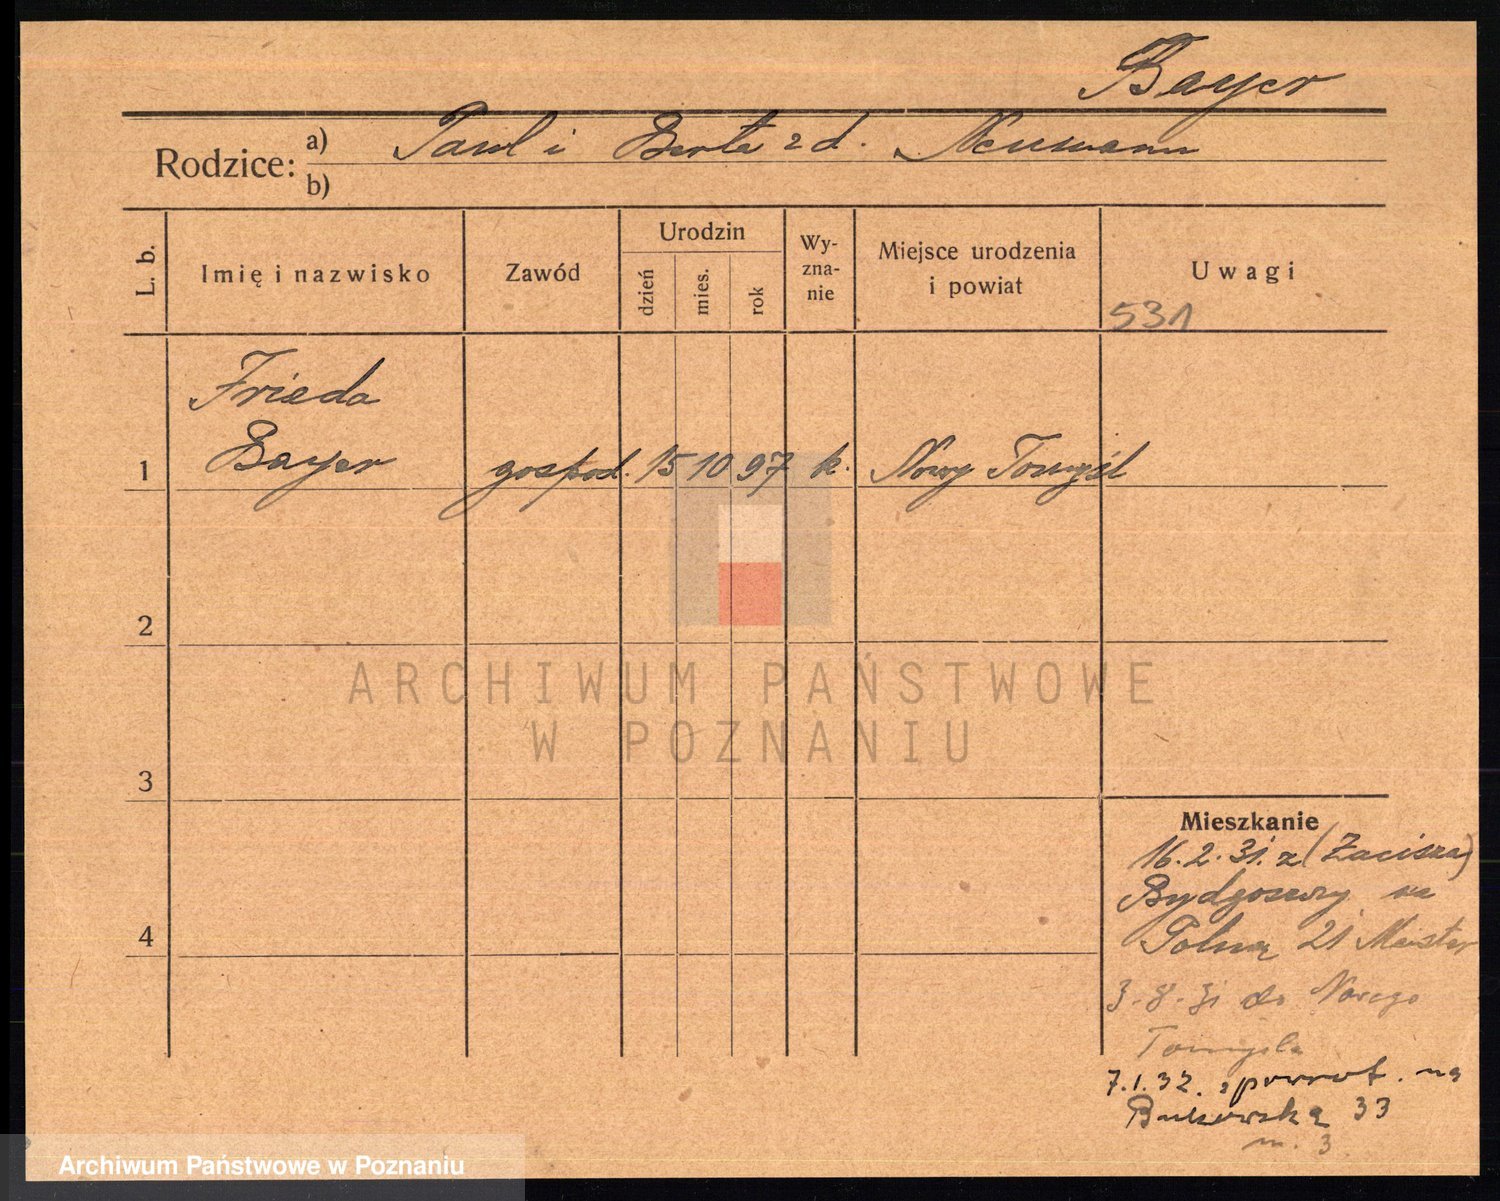 Bayer
Rodzice:
a) Paul i Berta z d. Neumann
b)
L. b.
Imię i nazwisko
Zawód
Urodzin
dzień
mies.
rok
Wy-
zna-
nie
Miejsce urodzenia
i powiat
Uwagi
531
Frieda
1 Bayer gospod. 15 10 97 k. Nowy Tomyśl
2
3
4
ARCHIWUM PAŃSTWOWE
W POZNANIU
Mieszkanie
16.2.31. z (Zacisza)
Bydgoszczy na
Polną 21 Meister
3.8.31 do Nowego
Tomyśla
7.1.32. z powrot. na
Bukowską 33
m. 3
Archiwum Państwowe w Poznaniu